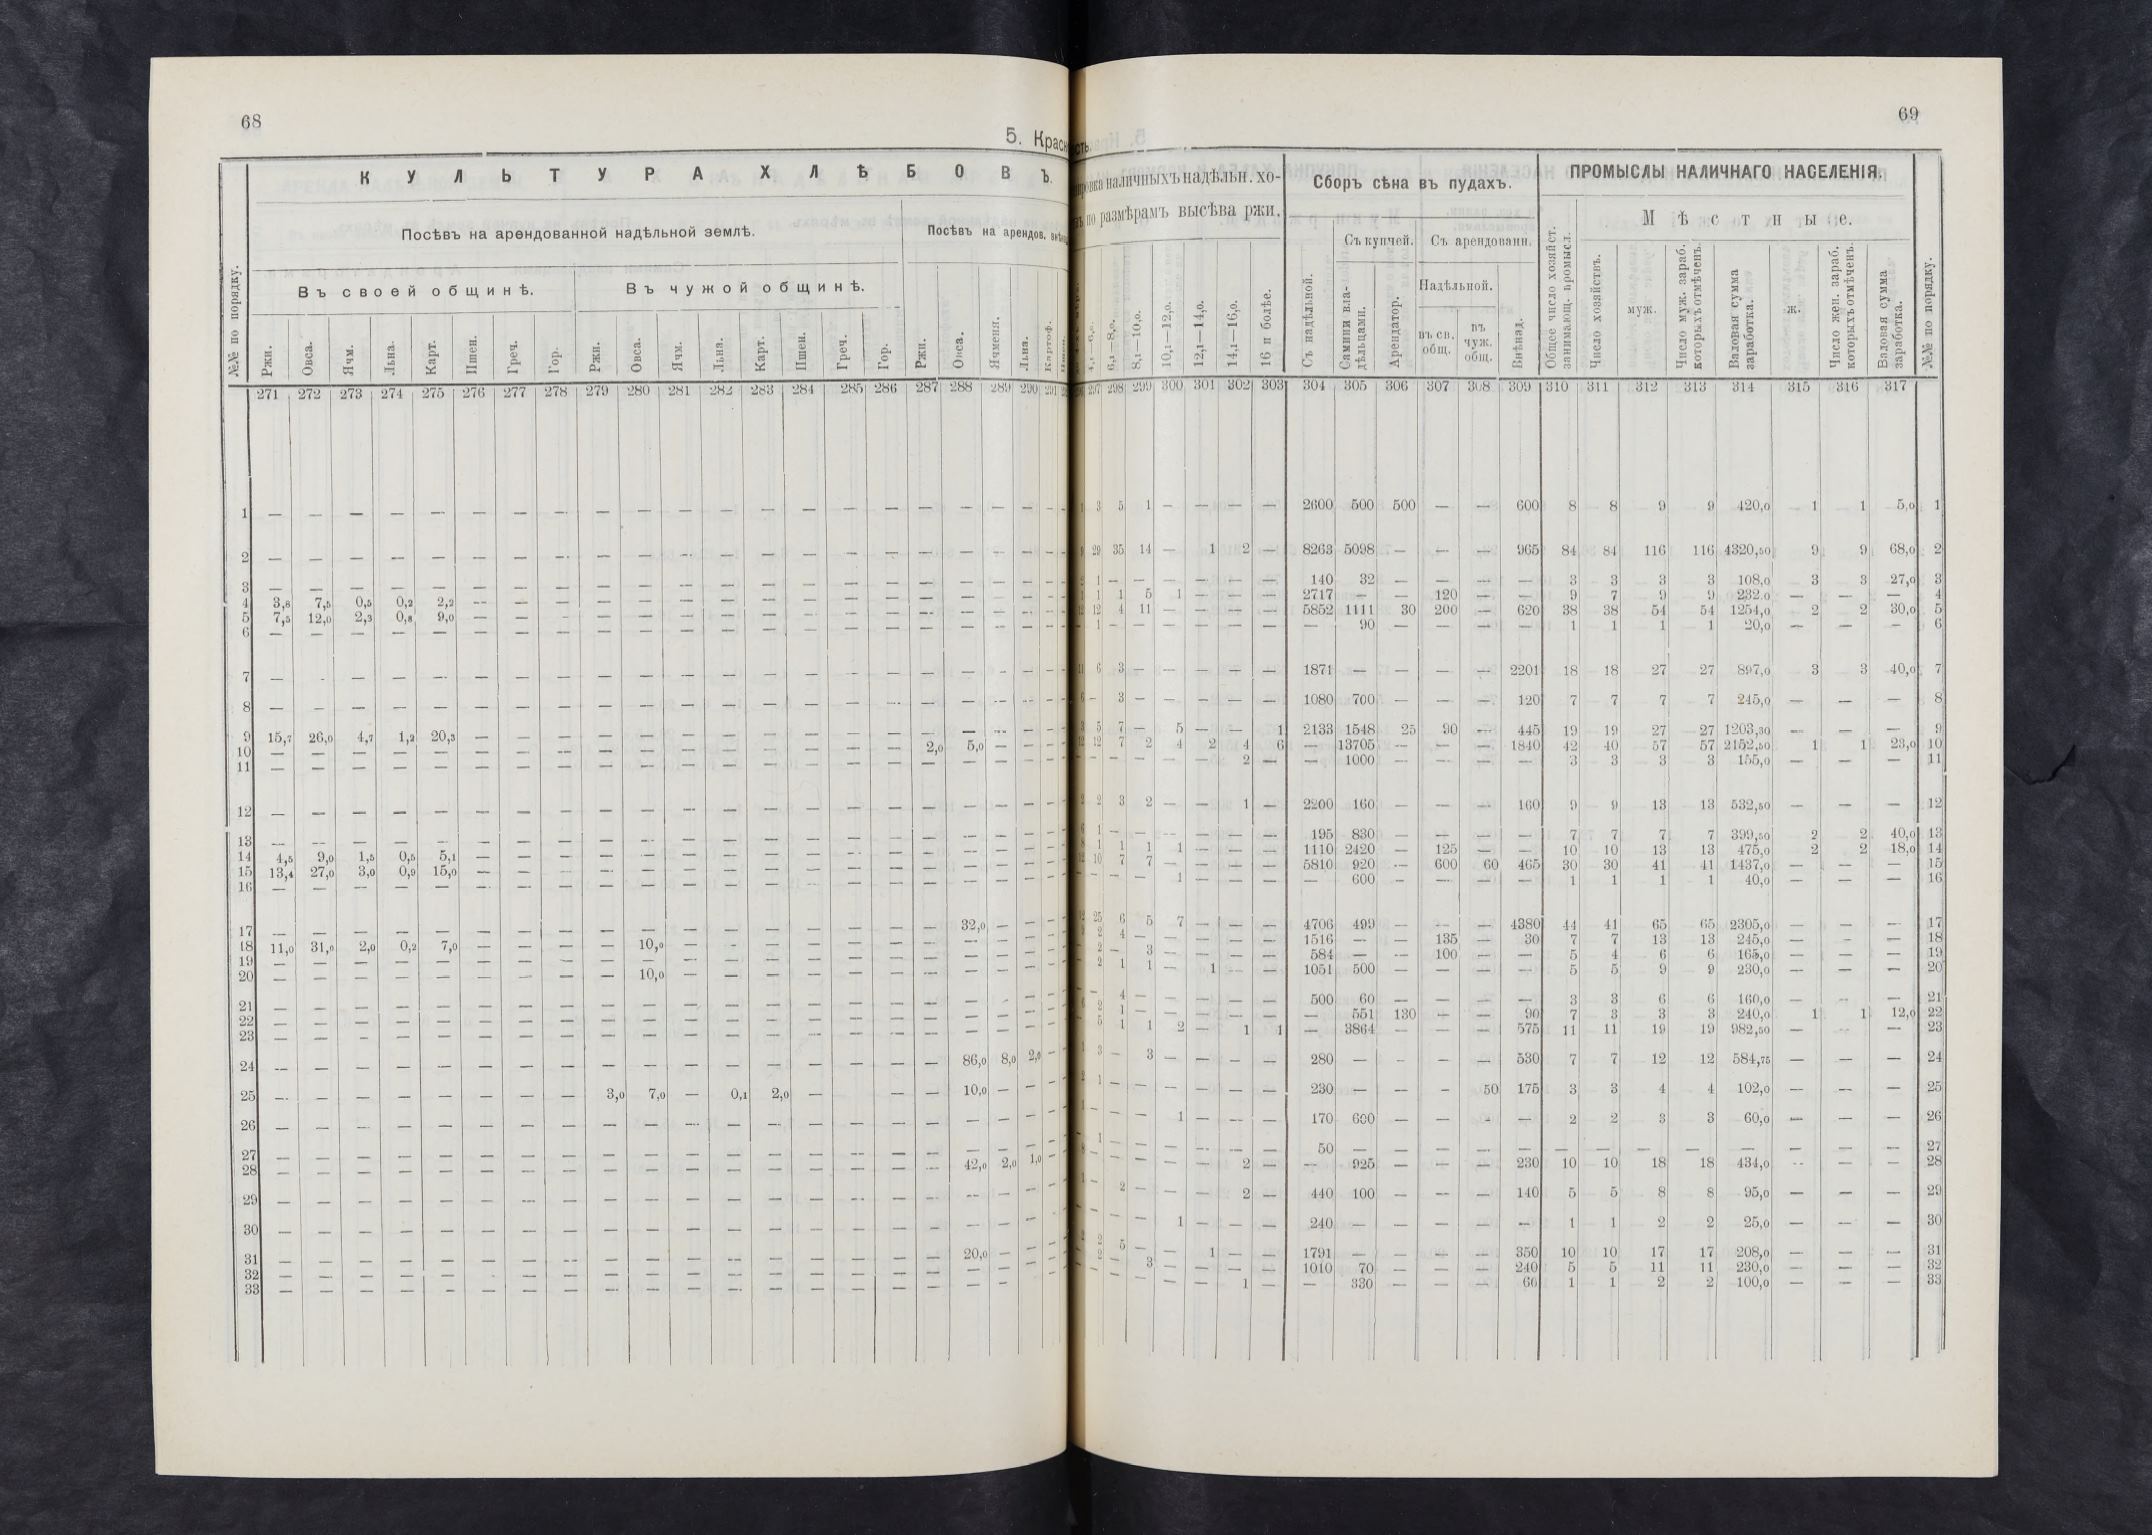 68
5. Краск
К У Л Ь Т У Р А Х Л Ѣ Б О В Ъ.
Посѣвъ на арендованной надѣльной землѣ.
Посѣвъ на арендов.
Въ своей общинѣ.
Въ чужой общинѣ.
№№ по порядку. Ржи. Овса. Ячм. Льна. Карт. Пшен. Греч. Гор. Ржи. Овса. Ячм. Льна. Карт. Пшен. Греч. Гор. Ржи. Овса. Ячменя. Льна. Картоф.
271 272 273 274 275 276 277 278 279 280 281 282 283 284 285 286 287 288 289 290 291
1 — — — — — — — — — — — — — — — — — — — —
2 — — — — — — — — — — — — — — — — — — — —
3 — — — — — — — — — — — — — — — — — — — —
4 3,8 7,5 0,5 0,2 2,2 — — — — — — — — — — — — — — —
5 7,5 12,0 2,3 0,8 9,0 — — — — — — — — — — — — — — —
6 — — — — — — — — — — — — — — — — — — — —
7 — — — — — — — — — — — — — — — — — — — —
8 — — — — — — — — — — — — — — — — — — — —
9 15,7 26,0 4,7 1,2 20,3 — — — — — — — — — — — — — — —
10 — — — — — — — — — — — — — — — — 2,0 5,0 — —
11 — — — — — — — — — — — — — — — — — — — —
12 — — — — — — — — — — — — — — — — — — — —
13 — — — — — — — — — — — — — — — — — — — —
14 4,5 9,0 1,5 0,5 5,1 — — — — — — — — — — — — — — —
15 13,4 27,0 3,0 0,9 15,0 — — — — — — — — — — — — — — —
16 — — — — — — — — — — — — — — — — — — — —
17 — — — — — — — — — — — — — — — — — 32,0 — —
18 11,0 31,0 2,0 0,2 7,0 — — — — 10,0 — — — — — — — — — —
19 — — — — — — — — — — — — — — — — — — — —
20 — — — — — — — — — 10,0 — — — — — — — — — —
21 — — — — — — — — — — — — — — — — — — — —
22 — — — — — — — — — — — — — — — — — — — —
23 — — — — — — — — — — — — — — — — — — — —
24 — — — — — — — — — — — — — — — — — 86,0 8,0 2,0
25 — — — — — — — — 3,0 7,0 — 0,1 2,0 — — — 10,0 — —
26 — — — — — — — — — — — — — — — — — — — —
27 — — — — — — — — — — — — — — — — — — — —
28 — — — — — — — — — — — — — — — — — 42,0 2,0 1,0
29 — — — — — — — — — — — — — — — — — — — —
30 — — — — — — — — — — — — — — — — — — — —
31 — — — — — — — — — — — — — — — — — 20,0 — —
32 — — — — — — — — — — — — — — — — — — — —
33 — — — — — — — — — — — — — — — — — — — —
69
сть.
наличныхъ надѣльн. хо-
по размѣрамъ высѣва ржи.
Сборъ сѣна въ пудахъ.
ПРОМЫСЛЫ НАЛИЧНАГО НАСЕЛЕНІЯ.
М ѣ с т н ы е.
Съ купчей. Съ арендованн.
Надѣльной.
6,1—8,0. 8,1—10,0. 10,1—12,0. 12,1—14,0. 14,1—16,0. 16 и болѣе. Съ надѣльной. Самими вла- дѣльцами. Арендатор. въ св. общ. въ чуж. общ. Внѣнад. Общее число хозяйст. занимающ. промысл. Число хозяйствъ. муж. Число муж. зараб. которыхъ отмѣченъ. Валовая сумма заработка. ж. Число жен. зараб. которыхъ отмѣченъ. Валовая сумма заработка. №№ по порядку.
297 298 299 300 301 302 303 304 305 306 307 308 309 310 311 312 313 314 315 316 317
3 5 1 — — — — 2600 500 500 — — 600 8 8 9 9 420,0 1 1 5,0 1
29 35 14 — 1 2 — 8263 5098 — — — 965 84 84 116 116 4320,50 9 9 68,0 2
1 — — — — — — 140 32 — — — — 3 3 3 3 108,0 3 3 27,0 3
1 1 5 1 — — — 2717 — — 120 — — 9 7 9 9 232,0 — — — 4
12 4 11 — — — — 5852 1111 30 200 — 620 38 38 54 54 1254,0 2 2 30,0 5
1 — — — — — — — 90 — — — — 1 1 1 1 20,0 — — — 6
6 3 — — — — — 1871 — — — — 2201 18 18 27 27 897,0 3 3 40,0 7
— 3 — — — — — 1080 700 — — — 120 7 7 7 7 245,0 — — — 8
5 7 — 5 — — 1 2133 1548 25 90 — 445 19 19 27 27 1203,30 — — — 9
12 7 2 4 2 4 6 — 13705 — — — 1840 42 40 57 57 2152,50 1 1 23,0 10
— — — — — 2 — — 1000 — — — — 3 3 3 3 155,0 — — — 11
2 3 2 — — 1 — 2200 160 — — — 160 9 9 13 13 532,50 — — — 12
1 — — — — — — 195 830 — — — — 7 7 7 7 399,50 2 2 40,0 13
1 1 1 1 — — — 1110 2420 — 125 — — 10 10 13 13 475,0 2 2 18,0 14
10 7 7 — — — — 5810 920 — 600 60 465 30 30 41 41 1437,0 — — — 15
— — — 1 — — — — 600 — — — — 1 1 1 1 40,0 — — — 16
25 6 5 7 — — — 4706 499 — — — 4380 44 41 65 65 2305,0 — — — 17
2 4 — — — — — 1516 — — 135 — 30 7 7 13 13 245,0 — — — 18
2 — 3 — — — — 584 — — 100 — — 5 4 6 6 165,0 — — — 19
2 1 1 — 1 — — 1051 500 — — — — 5 5 9 9 230,0 — — — 20
— 4 — — — — — 500 60 — — — — 3 3 6 6 160,0 — — — 21
2 1 — — — — — — 551 130 — — 90 7 3 3 3 240,0 1 1 12,0 22
5 1 1 2 — 1 1 — 3864 — — — 575 11 11 19 19 982,50 — — — 23
3 — 3 — — — — 280 — — — — 530 7 7 12 12 584,75 — — — 24
1 — — — — — — 230 — — — 50 175 3 3 4 4 102,0 — — — 25
— — — 1 — — — 170 600 — — — — 2 2 3 3 60,0 — — — 26
1 — — — — — — 50 — — — — — — — — — — — — — 27
— — — — — 2 — — 925 — — — 230 10 10 18 18 434,0 — — — 28
— 2 — — — 2 — 440 100 — — — 140 5 5 8 8 95,0 — — — 29
— — — 1 — — — 240 — — — — — 1 1 2 2 25,0 — — — 30
2 5 — — 1 — — 1791 — — — — 350 10 10 17 17 208,0 — — — 31
— 3 — — — — 1010 70 — — — 240 5 5 11 11 230,0 — — — 32
— — — — — 1 — — 330 — — — 60 1 1 2 2 100,0 — — — 33